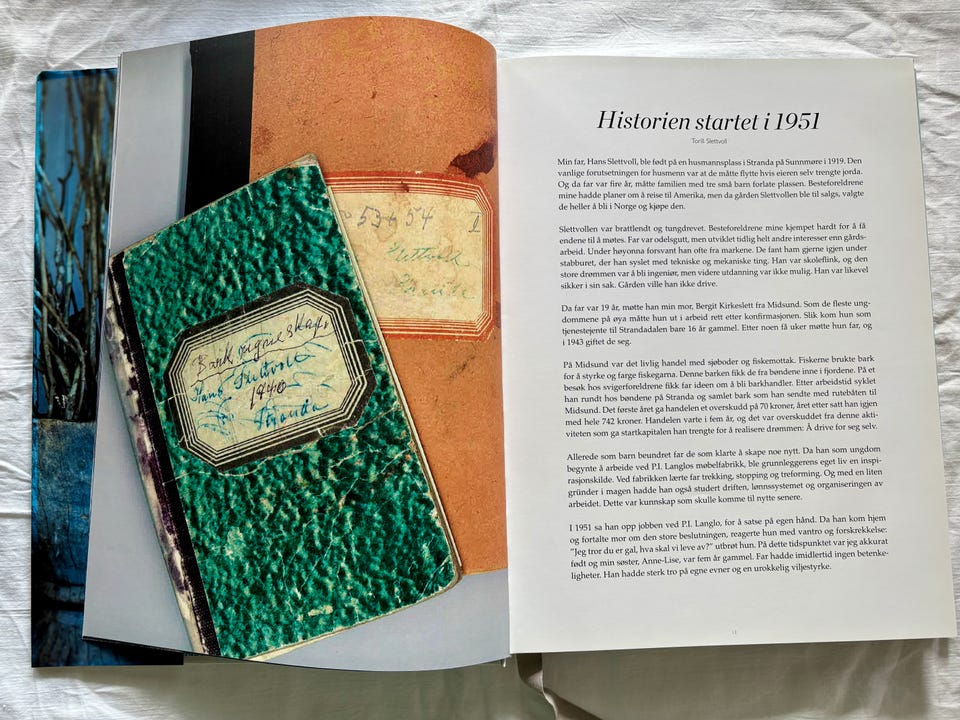 53 & 54 I
Slettvoll
Stranda
Bark regneskap,
Hans Slettvoll
1940
Stranda
Historien startet i 1951
Torill Slettvoll
Min far, Hans Slettvoll, ble født på en husmannsplass i Stranda på Sunnmøre i 1919. Den
vanlige forutsetningen for husmenn var at de måtte flytte hvis eieren selv trengte jorda.
Og da far var fire år, måtte familien med tre små barn forlate plassen. Besteforeldrene
mine hadde planer om å reise til Amerika, men da gården Slettvollen ble til salgs, valgte
de heller å bli i Norge og kjøpe den.
Slettvollen var brattlendt og tungdrevet. Besteforeldrene mine kjempet hardt for å få
endene til å møtes. Far var odelsgutt, men utviklet tidlig helt andre interesser enn gårds-
arbeid. Under høyonna forsvant han ofte fra markene. De fant ham gjerne igjen under
stabburet, der han syslet med tekniske og mekaniske ting. Han var skoleflink, og den
store drømmen var å bli ingeniør, men videre utdanning var ikke mulig. Han var likevel
sikker i sin sak. Gården ville han ikke drive.
Da far var 19 år, møtte han min mor, Bergit Kirkeslett fra Midsund. Som de fleste ung-
dommene på øya måtte hun ut i arbeid rett etter konfirmasjonen. Slik kom hun som
tjenestejente til Strandadalen bare 16 år gammel. Etter noen få uker møtte hun far, og
i 1943 giftet de seg.
På Midsund var det livlig handel med sjøboder og fiskemottak. Fiskerne brukte bark
for å styrke og farge fiskegarna. Denne barken fikk de fra bøndene inne i fjordene. På et
besøk hos svigerforeldrene fikk far ideen om å bli barkhandler. Etter arbeidstid syklet
han rundt hos bøndene på Stranda og samlet bark som han sendte med rutebåten til
Midsund. Det første året ga handelen et overskudd på 70 kroner, året etter satt han igjen
med hele 742 kroner. Handelen varte i fem år, og det var overskuddet fra denne akti-
viteten som ga startkapitalen han trengte for å realisere drømmen: Å drive for seg selv.
Allerede som barn beundret far de som klarte å skape noe nytt. Da han som ungdom
begynte å arbeide ved P.I. Langlos møbelfabrikk, ble grunnleggerens eget liv en inspi-
rasjonskilde. Ved fabrikken lærte far trekking, stopping og treforming. Og med en liten
gründer i magen hadde han også studert driften, lønnssystemet og organiseringen av
arbeidet. Dette var kunnskap som skulle komme til nytte senere.
I 1951 sa han opp jobben ved P.I. Langlo, for å satse på egen hånd. Da han kom hjem
og fortalte mor om den store beslutningen, reagerte hun med vantro og forskrekkelse:
"Jeg tror du er gal, hva skal vi leve av?" utbrøt hun. På dette tidspunktet var jeg akkurat
født og min søster, Anne-Lise, var fem år gammel. Far hadde imidlertid ingen betenke-
ligheter. Han hadde sterk tro på egne evner og en urokkelig viljestyrke.
11